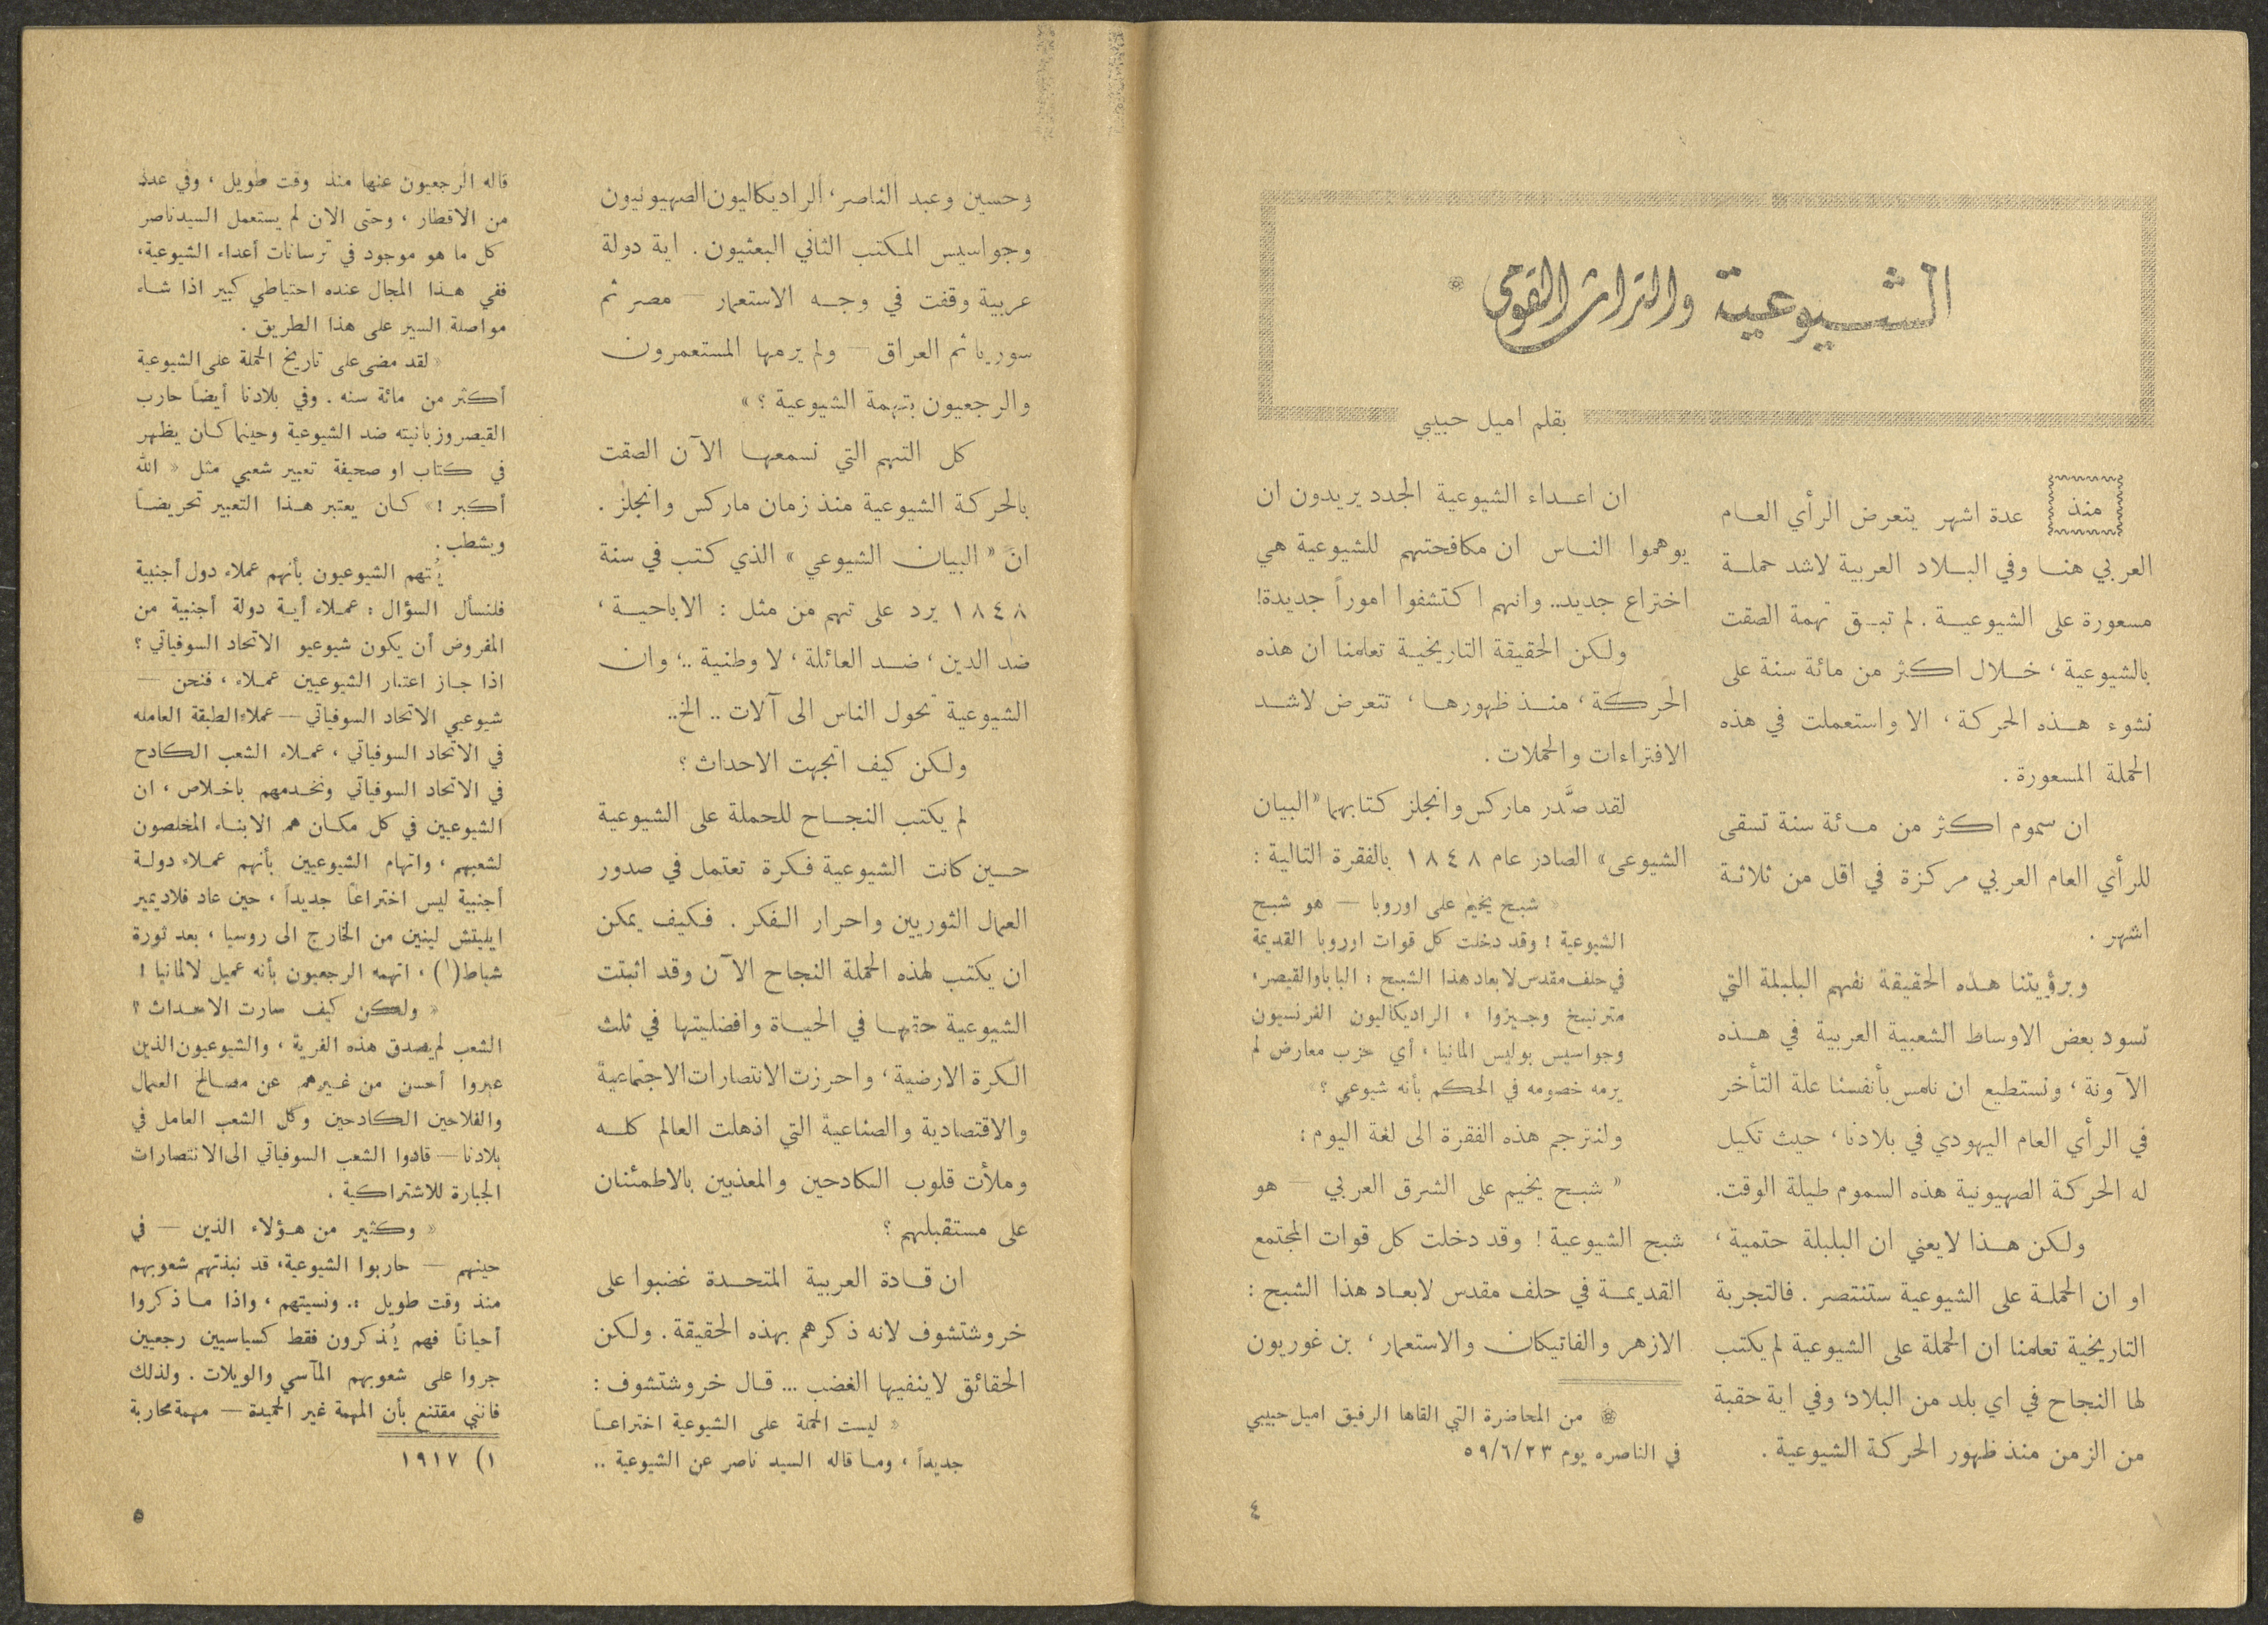 الشيوعية والتراث القومي *
بقلم اميل حبيبي
منذ عدة اشهر يتعرض الرأي العام
العربي هنا وفي البلاد العربية لاشد حملة
مسعورة على الشيوعية . لم تبق تهمة الصقت
بالشيوعية ، خلال اكثر من مائة سنة على
نشوء هذه الحركة ، الا واستعملت في هذه
الحملة المسعورة .
ان سموم اكثر من مائة سنة تسقى
للرأي العام العربي مركزة في اقل من ثلاثة
اشهر .
وبرؤيتنا هذه الحقيقة نفهم البلبلة التي
تسود بعض الاوساط الشعبية العربية في هذه
الآونة ، ونستطيع ان نلمس بأنفسنا علة التأخر
في الرأي العام اليهودي في بلادنا ، حيث تكيل
له الحركة الصهيونية هذه السموم طيلة الوقت .
ولكن هذا لا يعني ان البلبلة حتمية ،
او ان الحملة على الشيوعية ستنتصر . فالتجربة
التاريخية تعلمنا ان الحملة على الشيوعية لم يكتب
لها النجاح في اي بلد من البلاد، وفي اية حقبة
من الزمن منذ ظهور الحركة الشيوعية .
ان اعداء الشيوعية الجدد يريدون ان
يوهموا الناس ان مكافحتهم للشيوعية هي
اختراع جديد.. وانهم اكتشفوا اموراً جديدة!
ولكن الحقيقة التاريخية تعلمنا ان هذه
الحركة ، منذ ظهورها ، تتعرض لاشد
الافتراءات والحملات .
لقد صدَّر ماركس وانجلز كتابهما «البيان
الشيوعي» الصادر عام ١٨٤٨ بالفقرة التالية :
« شبح يخيم على اوروبا — هو شبح
الشيوعية ! وقد دخلت كل قوات اوروبا القديمة
في حلف مقدس لابعاد هذا الشبح : البابا والقيصر،
مترنيخ وجيزوا ، الراديكاليون الفرنسيون
وجواسيس بوليس المانيا ، أي حزب معارض لم
يرمه خصومه في الحكم بأنه شيوعي ؟
ولنترجم هذه الفقرة الى لغة اليوم :
« شبح يخيم على الشرق العربي — هو
شبح الشيوعية ! وقد دخلت كل قوات المجتمع
القديمة في حلف مقدس لابعاد هذا الشبح :
الازهر والفاتيكان والاستعمار ، بن غوريون
* من المحاضرة التي القاها الرفيق اميل حبيبي
في الناصره يوم ٥٩/٦/٢٣
٤
وحسين وعبد الناصر ، الراديكاليون الصهيونيون
وجواسيس المكتب الثاني البعثيون . اية دولة
عربية وقفت في وجه الاستعمار — مصر ثم
سوريا ثم العراق — ولم يرمها المستعمرون
والرجعيون بتهمة الشيوعية ؟ »
كل التهم التي نسمعها الآن الصقت
بالحركة الشيوعية منذ زمان ماركس وانجلز .
انَّ « البيان الشيوعي » الذي كتب في سنة
١٨٤٨ يرد على تهم من مثل : الاباحية ،
ضد الدين ، ضد العائلة ، لا وطنية ..، وان
الشيوعية تحول الناس الى آلات .. الخ..
ولكن كيف اتجهت الاحداث ؟
لم يكتب النجاح للحملة على الشيوعية
حين كانت الشيوعية فكرة تعتمل في صدور
العمال الثوريين واحرار الفكر . فكيف يمكن
ان يكتب لهذه الحملة النجاح الآن وقد اثبتت
الشيوعية حقها في الحياة وافضليتها في ثلث
الكرة الارضية ، واحرزت الانتصارات الاجتماعية
والاقتصادية والصناعية التي اذهلت العالم كله
وملأت قلوب الكادحين والمعذبين بالاطمئنان
على مستقبلهم ؟
ان قادة العربية المتحدة غضبوا على
خروشتشوف لانه ذكرهم بهذه الحقيقة . ولكن
الحقائق لا ينفيها الغضب ... قال خروشتشوف :
« ليست الحملة على الشيوعية اختراعاً
جديداً ، وما قاله السيد ناصر عن الشيوعية ..
قاله الرجعيون عنها منذ وقت طويل ، وفي عدد
من الاقطار ، وحتى الان لم يستعمل السيد ناصر
كل ما هو موجود في ترسانات أعداء الشيوعية،
ففي هذا المجال عنده احتياطي كبير اذا شاء
مواصلة السير على هذا الطريق .
« لقد مضى على تاريخ الحملة على الشيوعية
أكثر من مائة سنه . وفي بلادنا أيضاً حارب
القيصر وزبانيته ضد الشيوعية وحينما كان يظهر
في كتاب او صحيفة تعبير شعبي مثل « الله
أكبر !» كان يعتبر هذا التعبير تحريضاً
ويشطب .
يُتهم الشيوعيون بأنهم عملاء دول أجنبية
فلنسأل السؤال : عملاء أية دولة أجنبية من
المفروض أن يكون شيوعيو الاتحاد السوفياتي ؟
اذا جاز اعتبار الشيوعيين عملاء ، فنحن —
شيوعيي الاتحاد السوفياتي — عملاء الطبقة العامله
في الاتحاد السوفياتي ، عملاء الشعب الكادح
في الاتحاد السوفياتي ونخدمهم باخلاص ، ان
الشيوعيين في كل مكان هم الابناء المخلصون
لشعبهم ، واتهام الشيوعيين بأنهم عملاء دولة
أجنبية ليس اختراعاً جديداً ، حين عاد فلاديمير
ايليتش لينين من الخارج الى روسيا ، بعد ثورة
شباط(١) ، اتهمه الرجعيون بأنه عميل لالمانيا !
« ولكن كيف سارت الاحداث ؟
الشعب لم يصدق هذه الفرية ، والشيوعيون الذين
عبروا أحسن من غيرهم عن مصالح العمال
والفلاحين الكادحين وكل الشعب العامل في
بلادنا — قادوا الشعب السوفياتي الى الانتصارات
الجبارة للاشتراكية .
« وكثير من هؤلاء الذين — في
حينهم — حاربوا الشيوعية، قد نبذتهم شعوبهم
منذ وقت طويل .. ونسيتهم ، واذا ما ذكروا
أحياناً فهم يُذكرون فقط كسياسيين رجعيين
جروا على شعوبهم المآسي والويلات . ولذلك
فانني مقتنع بأن المهمة غير الحميدة — مهمة محاربة
١) ١٩١٧
٥